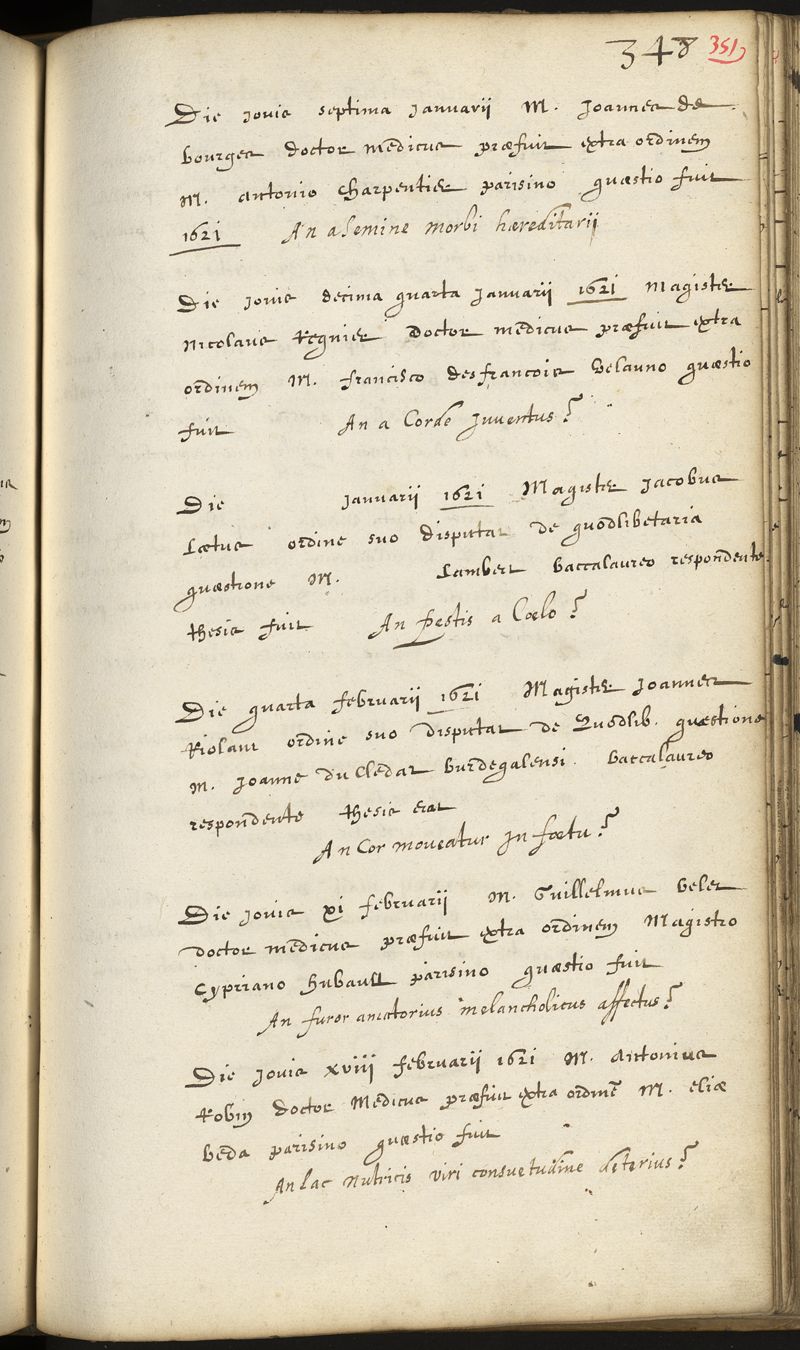 348 351
Die Jovis septima Januarii M. Joannes de
bourges doctor medicus præfuit extra ordinem
M. Antonio Charpentier parisino quæstio fuit
1621 An a semine morbi hæreditarii
Die Jovis decima quarta Januarii 1621 Magister
Nicolaus Regnier Doctor medicus præfuit extra
ordinem M. francisco desfrancois Velauno quæstio
fuit An a Corde Juventus?
Die Januarii 1621 Magister Jacobus
Lætus ordine suo disputat de quodlibetaria
quæstione M. Lambert baccalaureo respondente
thesis fuit An Pestis a Cœlo?
Die quarta februarii 1621 Magister Joannes
Riolant ordine suo disputat de Quodlib. quæstione
M. Joanne du Cledat burdegalensi. baccalaureo
respondente thesis erat
An Cor moveatur in fœtu?
Die Jovis xi februarii M. Guillelmus Velet
doctor medicus præfuit extra ordinem Magistro
Cypriano hubault parisino quæstio fuit
An furor amatorius melancholicus affectus?
Die Jovis xviii februarii 1621 M. Antonius
Robin doctor Medicus præfuit extra ordinē M. eliæ
beda parisino quæstio fuit
An lac Nutricis viri consuetudine deterius?